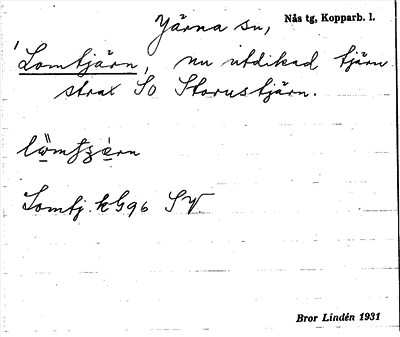 Järna sn, Nås tg, Kopparb. l.
'Lomtjärn, nu utdikad tjärn
strax SO Storustjärn.
Lomtj. kG96 SV
Bror Lindén 1931